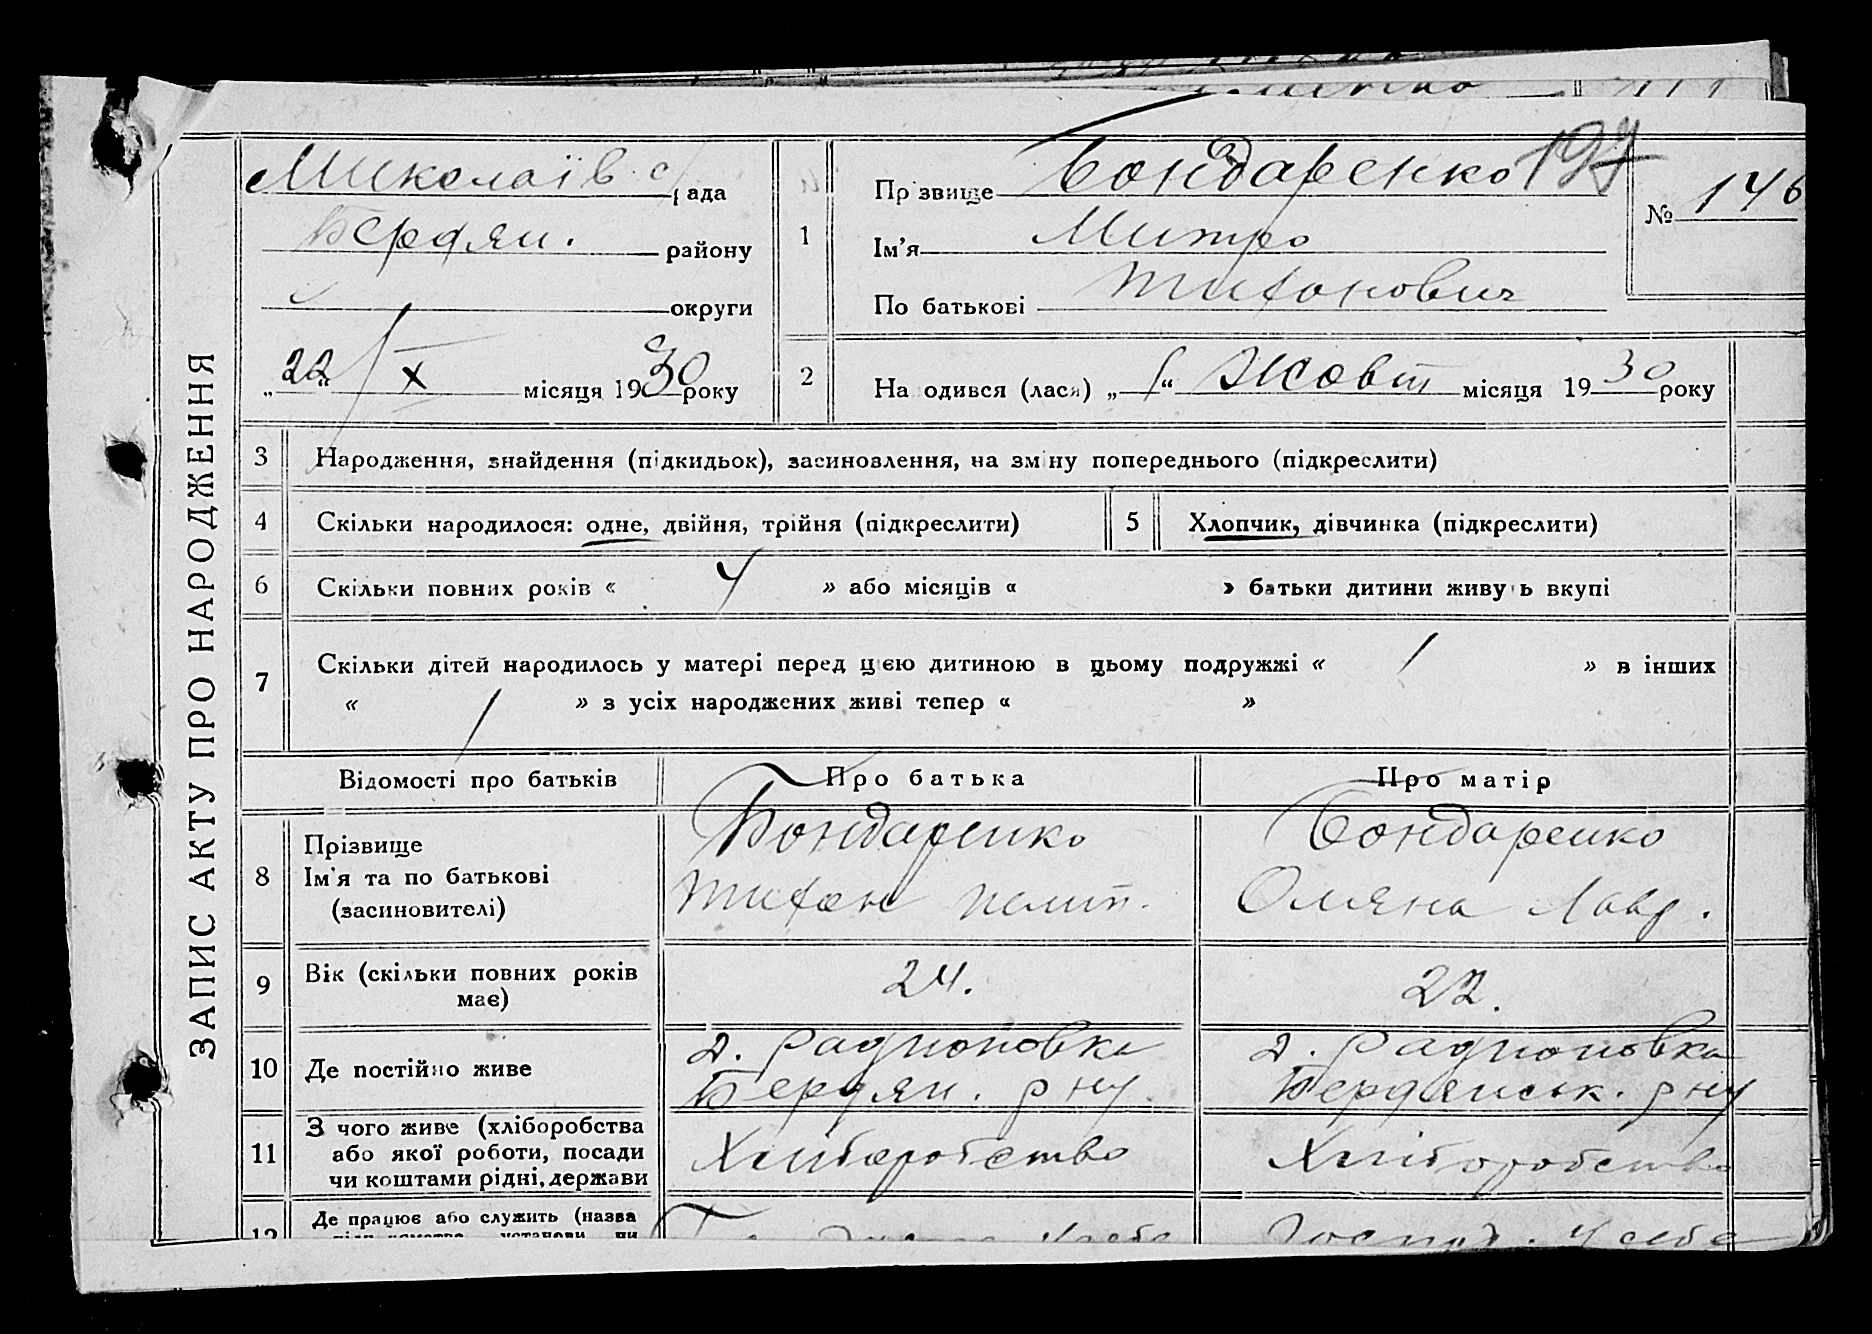 ЗАПИС АКТУ ПРО НАРОДЖЕННЯ
Миколаїв с/рада
Бердян. району
округи
„22“ X місяця 1930 року
1
Прізвище Бондаренко 197
Ім'я Митро
По батькові Тихонович
№ 146
2
На одився (лася) „ “ Жовт місяця 1930 року
3 Народження, знайдення (підкидьок), засиновлення, на зміну попереднього (підкреслити)
4 Скільки народилося: одне, двійня, трійня (підкреслити)
5 Хлопчик, дівчинка (підкреслити)
6 Скільки повних років « 4 » або місяців « » батьки дитини живуть вкупі
7 Скільки дітей народилось у матері перед цією дитиною в цьому подружжі « 1 » в інших
« / » з усіх народжених живі тепер « »
Відомості про батьків Про батька Про матір
8 Прізвище
Ім'я та по батькові
(засиновителі)
Бондаренко
Тихон
Бондаренко
Оляна Лавр.
9 Вік (скільки повних років
має)
24.
22.
10 Де постійно живе
д. Радионовка
Бердян. р ну
д. Радионовка
Бердянськ. р ну
11 З чого живе (хліборобства
або якої роботи, посади
чи коштами рідні, держави
Хліборобство
Хліборобство
12 Де працює або служить (назва
Господ. У себе